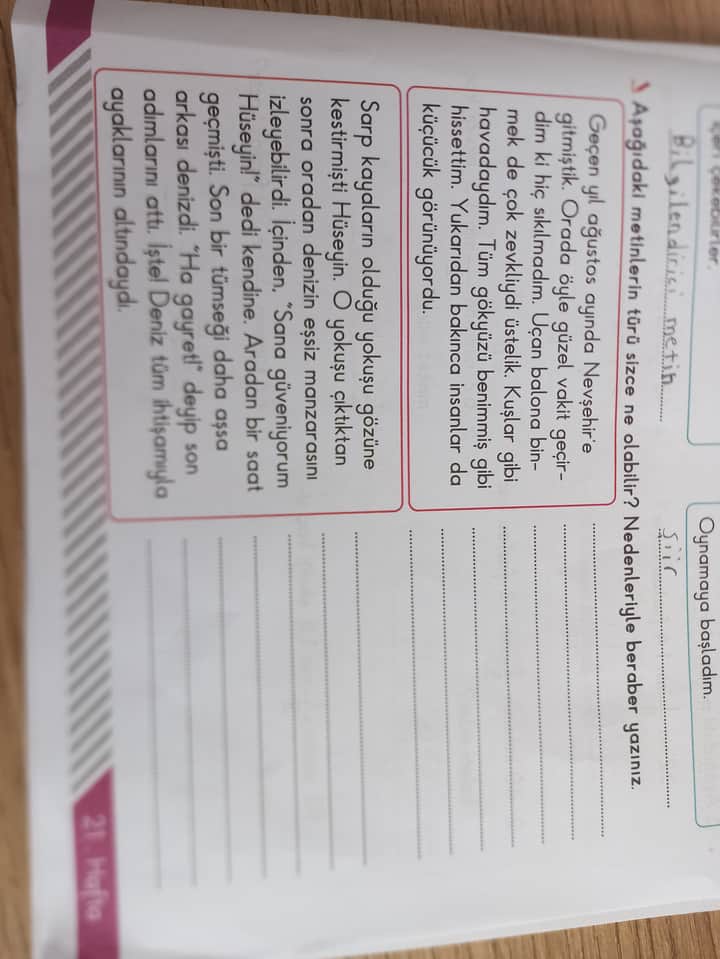 çekebilirler.
Bilgilendirici metin
Oynamaya başladım.
şiir
Aşağıdaki metinlerin türü sizce ne olabilir? Nedenleriyle beraber yazınız.
Geçen yıl ağustos ayında Nevşehir'e
gitmiştik. Orada öyle güzel vakit geçir-
dim ki hiç sıkılmadım. Uçan balona bin-
mek de çok zevkliydi üstelik. Kuşlar gibi
havadaydım. Tüm gökyüzü benimmiş gibi
hissettim. Yukarıdan bakınca insanlar da
küçücük görünüyordu.
Sarp kayaların olduğu yokuşu gözüne
kestirmişti Hüseyin. O yokuşu çıktıktan
sonra oradan denizin eşsiz manzarasını
izleyebilirdi. İçinden, "Sana güveniyorum
Hüseyin!" dedi kendine. Aradan bir saat
geçmişti. Son bir tümseği daha aşsa
arkası denizdi. "Ha gayret!" deyip son
adımlarını attı. İşte! Deniz tüm ihtişamıyla
ayaklarının altındaydı.
21. Hafta